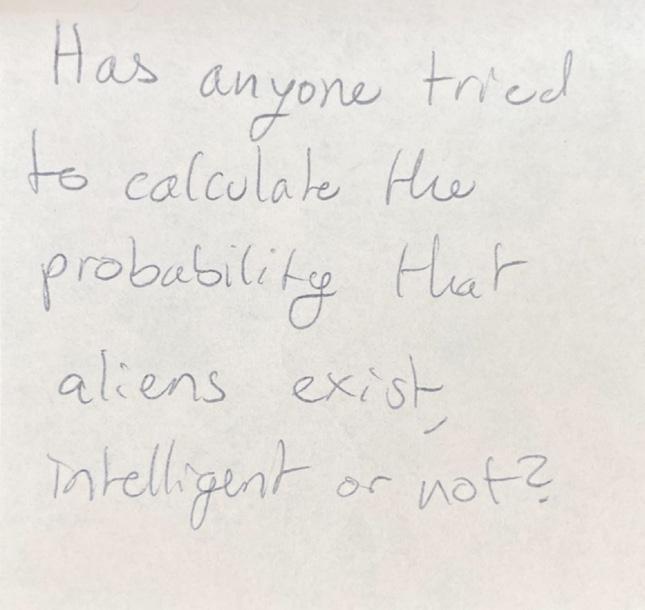 Has anyone tried
to calculate the
probability that
aliens exist,
intelligent or not?